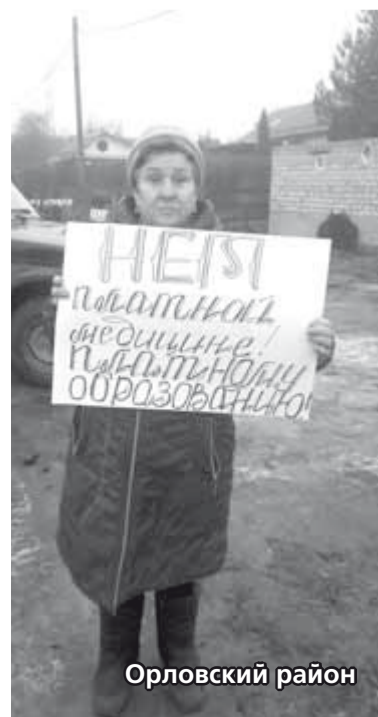 НЕТ
платной
медицине!
платному
ОБРАЗОВАНИЮ!
Орловский район